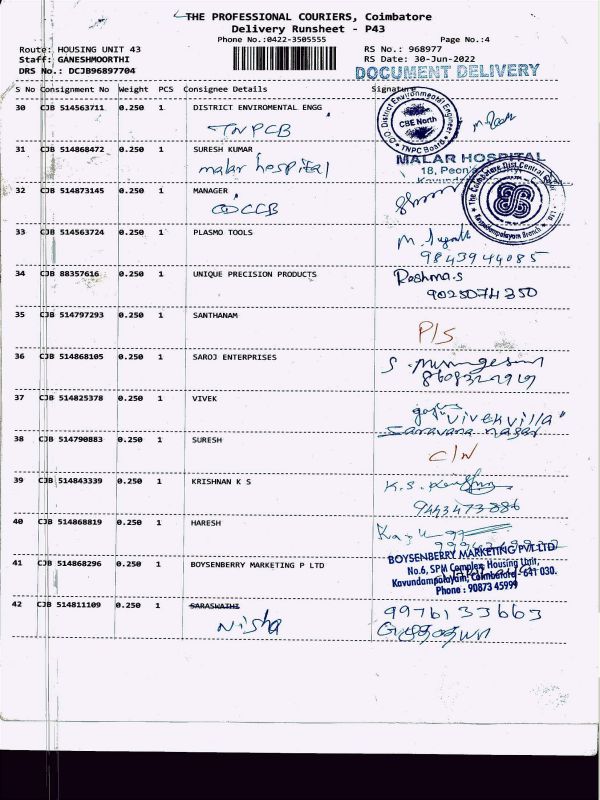 THE PROFESSIONAL COURIERS, Coimbatore
Delivery Runsheet - P43
Phone No.:0422-3505555 Page No.:4
Route: HOUSING UNIT 43 RS No.: 968977
Staff: GANESHMOORTHI RS Date: 30-Jun-2022
DRS No.: DCJB96897704 DOCUMENT DELIVERY
S No Consignment No Weight PCS Consignee Details Signature
30 CJB 514563711 0.250 1 DISTRICT ENVIROMENTAL ENGG
TNPCB
O/O. District Environmental Engineer
CBE North
TNPC Board
31 CJB 514868472 0.250 1 SURESH KUMAR
malar hospital
MALAR HOSPITAL
32 CJB 514873145 0.250 1 MANAGER
CDCCB
The Coimbatore Dist. Central
Kavundampalayam Branch
33 CJB 514563724 0.250 1 PLASMO TOOLS
9843944085
34 CJB 88357616 0.250 1 UNIQUE PRECISION PRODUCTS
Reshma.s
9025074350
35 CJB 514797293 0.250 1 SANTHANAM
P/S
36 CJB 514868105 0.250 1 SAROJ ENTERPRISES
37 CJB 514825378 0.250 1 VIVEK
"Vivek villa"
Saravana nagar
38 CJB 514790883 0.250 1 SURESH
C/N
39 CJB 514843339 0.250 1 KRISHNAN K S
K.S.
9443473886
40 CJB 514868819 0.250 1 HARESH
41 CJB 514868296 0.250 1 BOYSENBERRY MARKETING P LTD
BOYSENBERRY MARKETING PVT LTD
No.6, SPM Complex, Housing Unit,
Kavundampalayam, Coimbatore - 641 030.
Phone : 90873 45999
42 CJB 514811109 0.250 1 SARASWATHI
Nisha
9976133663